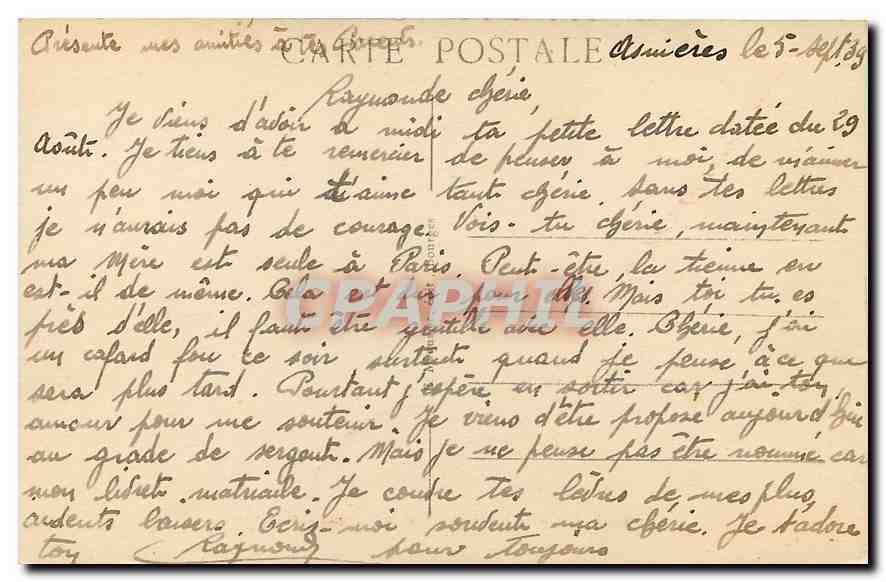 Présente mes amitiés à tes Parents.
CARTE POSTALE
Asnières le 5-Sept. 39
Raymonde chérie,
Je viens d'avoir a midi ta petite lettre datée du 29
Août. Je tiens à te remercier de penser à moi, de m'aimer
un peu moi qui t'aime tant chérie, sans tes lettres
je n'aurais pas de courage. Vois-tu chérie, maintenant
ma Mère est seule à Paris. Peut-être, la tienne en
est-il de même. Cela est dur pour elles. Mais toi tu es
près d'elle, il faut être gentille avec elle. Chérie, j'ai
un cafard fou ce soir surtout quand je pense à ce que
sera plus tard. Pourtant j'espère en sortir car j'ai ton
amour pour me soutenir. Je viens d'être proposé aujourd'hui
au grade de sergent. Mais je ne pense pas être nommé car
mon livret matricule. Je couvre tes lèvres de mes plus
ardents baisers. Ecris-moi souvent ma chérie. Je t'adore
ton Raymond pour toujours
CARTPHIL
Bourges